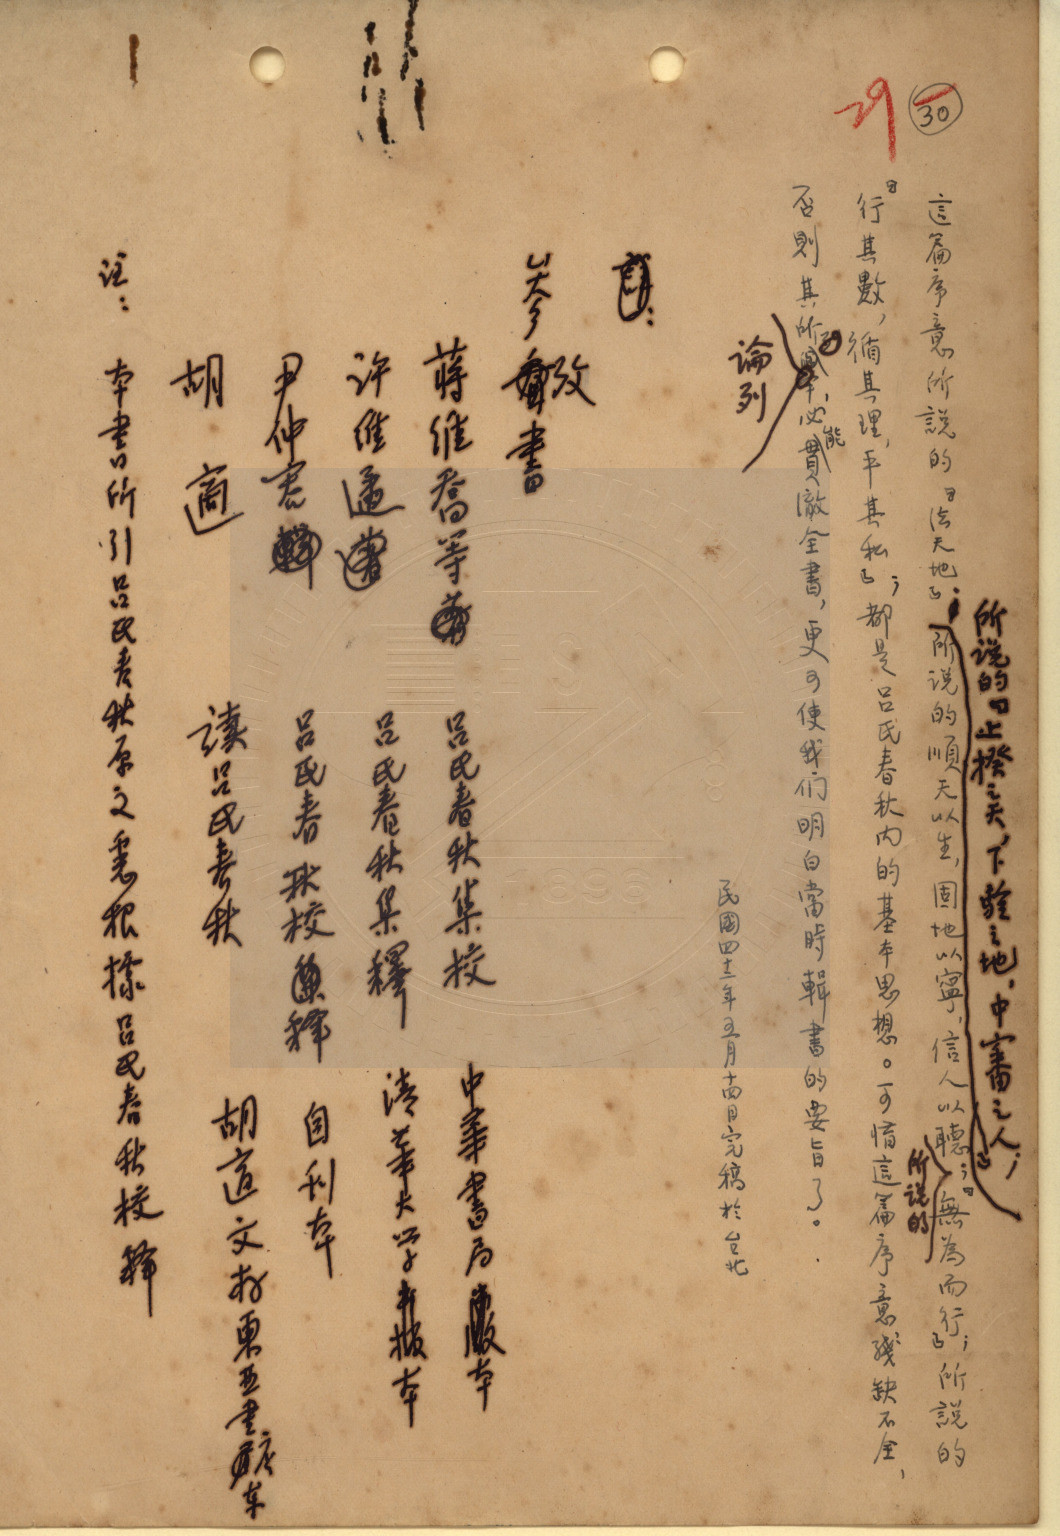 30
29
所說的『上揆之天,下驗之地,中審之人』;
這篇序意所說的『法天地』;所說的順天以生,固地以寧,信人以聽;所說的『無為而行』;所說的
『行其數,循其理,平其私』;都是呂氏春秋內的基本思想。可惜這篇序意殘缺不全,
否則其所論列,必能貫徹全書,更可使我們明白當時輯書的要旨了。
民國四十三年五月十四日完稿於台北
參攷書
蔣維喬等 呂氏春秋集校 中華書局版本
許維遹 呂氏春秋集釋 清華大學版本
尹仲容 呂氏春秋校釋 自刊本
胡適 讀呂氏春秋 胡適文存東亞書店本
註:本書所引呂氏春秋原文悉根據呂氏春秋校釋
1896